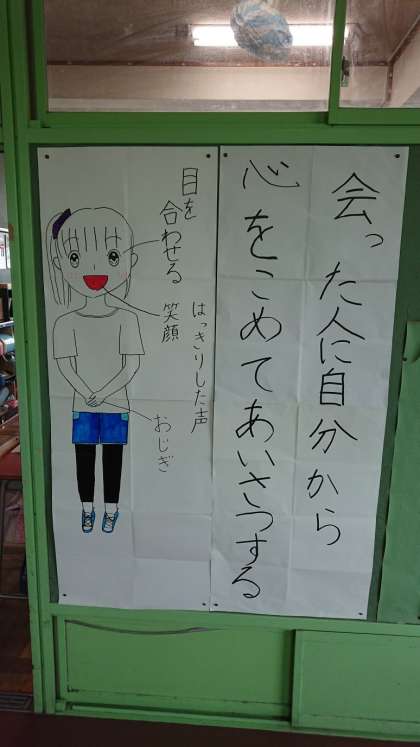 会った人に自分から
心をこめてあいさつする
目を
合わせる
はっきりした声
笑顔
おじぎ